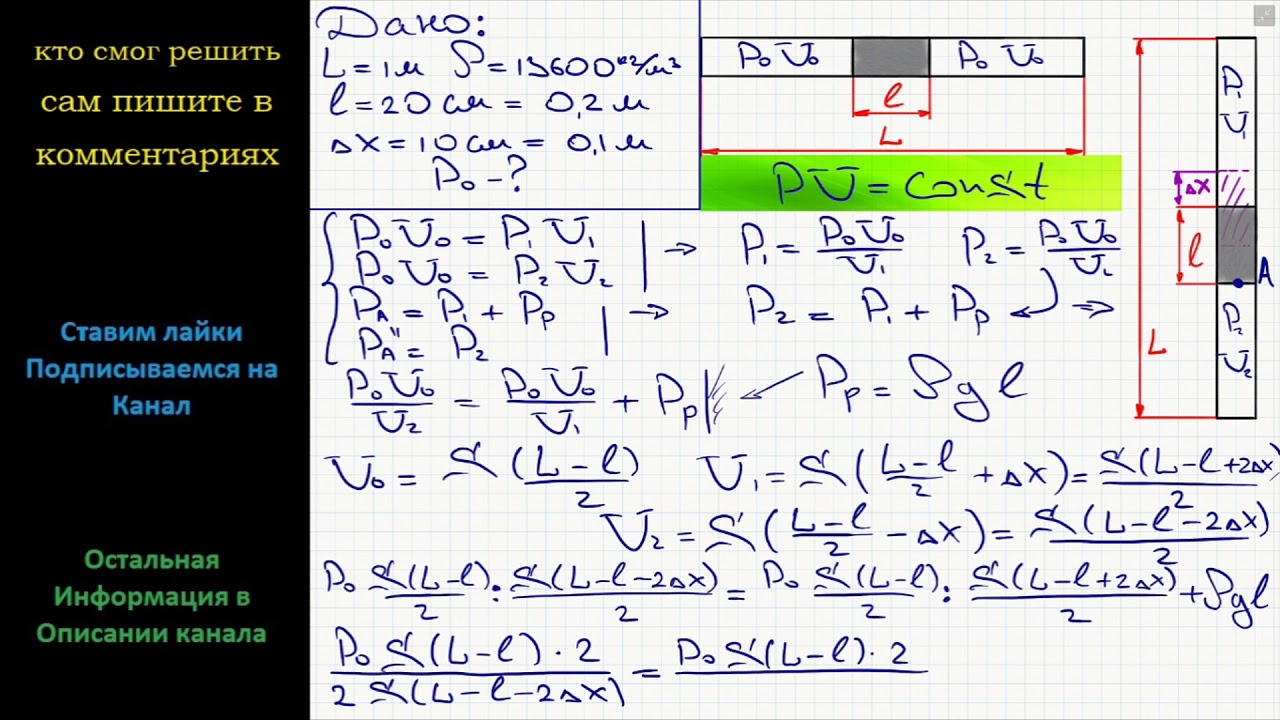 кто смог решить
сам пишите в
комментариях
Ставим лайки
Подписываемся на
Канал
Остальная
Информация в
Описании канала
Дано:
L = 1м ρ = 13600 кг/м³
l = 20 см = 0,2 м
ΔX = 10 см = 0,1 м
P₀ - ?
P₀ V₀ P₀ V₀
l
L
PV = const
P₁
V₁
ΔX
l
A
L
P₂
V₂
{ P₀V₀ = P₁V₁ | → P₁ = P₀V₀/V₁ P₂ = P₀V₀/V₂
P₀V₀ = P₂V₂
P_A = P₁ + P_p | → P₂ = P₁ + P_p ⇒
P_A" = P₂
P₀V₀/V₂ = P₀V₀/V₁ + P_p ← P_p = ρgl
V₀ = S(L-l)/2 V₁ = S((L-l)/2 + ΔX) = S(L-l+2ΔX)/2
V₂ = S((L-l)/2 - ΔX) = S(L-l-2ΔX)/2
P₀S(L-l)/2 : S(L-l-2ΔX)/2 = P₀S(L-l)/2 : S(L-l+2ΔX)/2 + ρgl
P₀S(L-l)·2/2S(L-l-2ΔX) = P₀S(L-l)·2